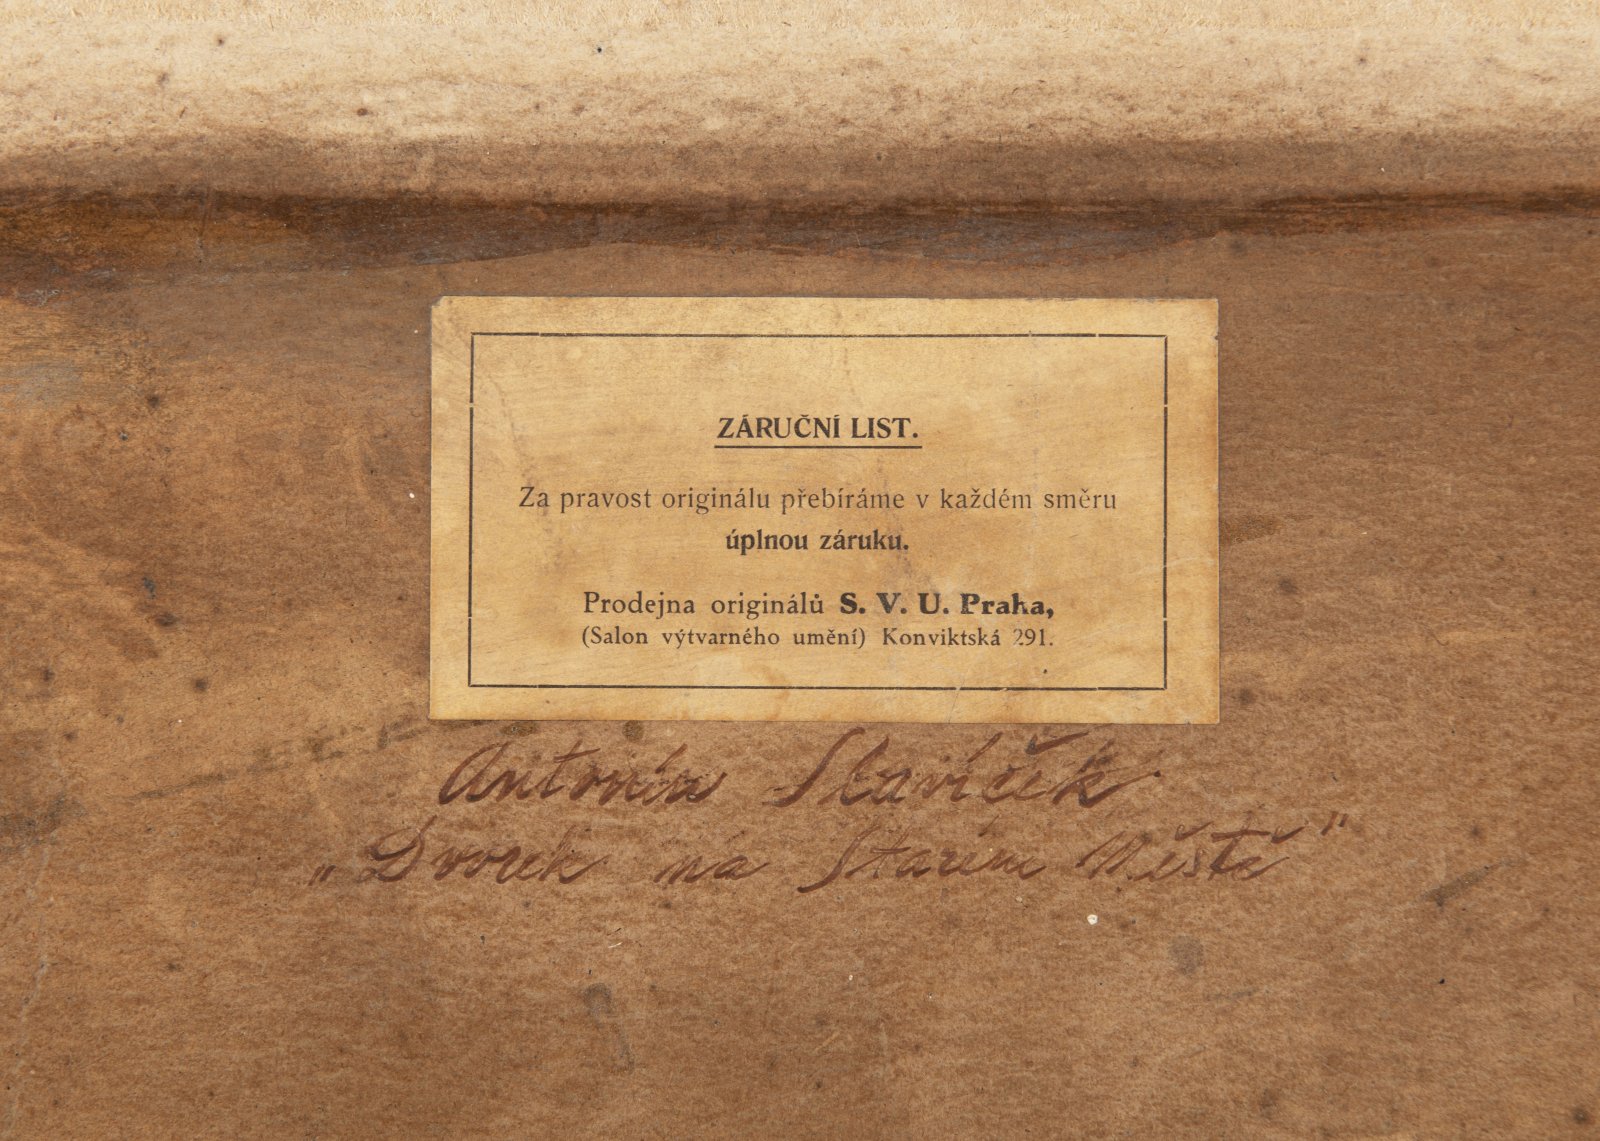 ZÁRUČNÍ LIST.
Za pravost originálu přebíráme v každém směru
úplnou záruku.
Prodejna originálů S. V. U. Praha,
(Salon výtvarného umění) Konviktská 291.
Antonín Slavíček
„Dvorek na Starém Městě"